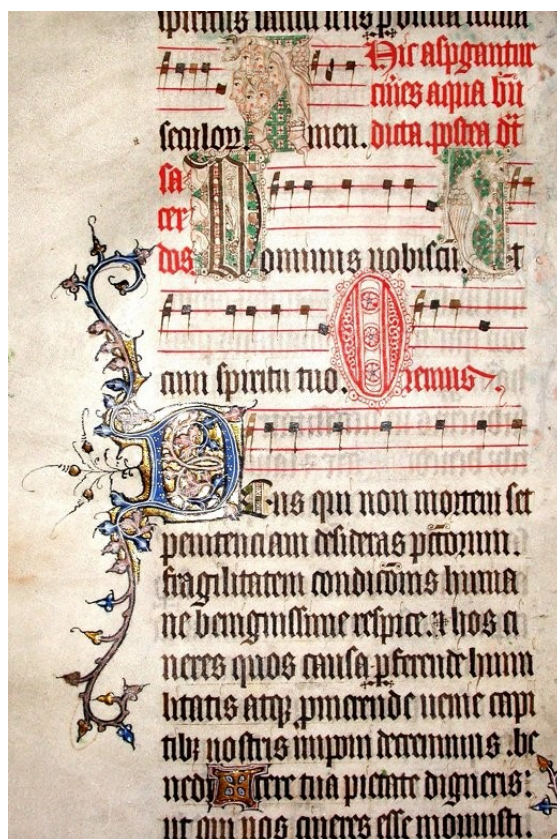 spiritus sancti deus p omnia secula
Hic aspgantur
cineres aqua bn
seculor. Amen. dicta postea dt
sa
cer
dos Dominus nobiscū. Et
cum spiritu tuo. Oremus
Deus qui non mortem set
penitenciam desideras pctorum.
fragilitatem condicōnis huma
ne benignissime respice. & hos ci
neres quos causa pferende humi
litatis atq; pmerende uenie capi
tib; nostris imponi decernimus. be
nedicere tua pietate digneris:
ut qui nos cineres esse monuisti.